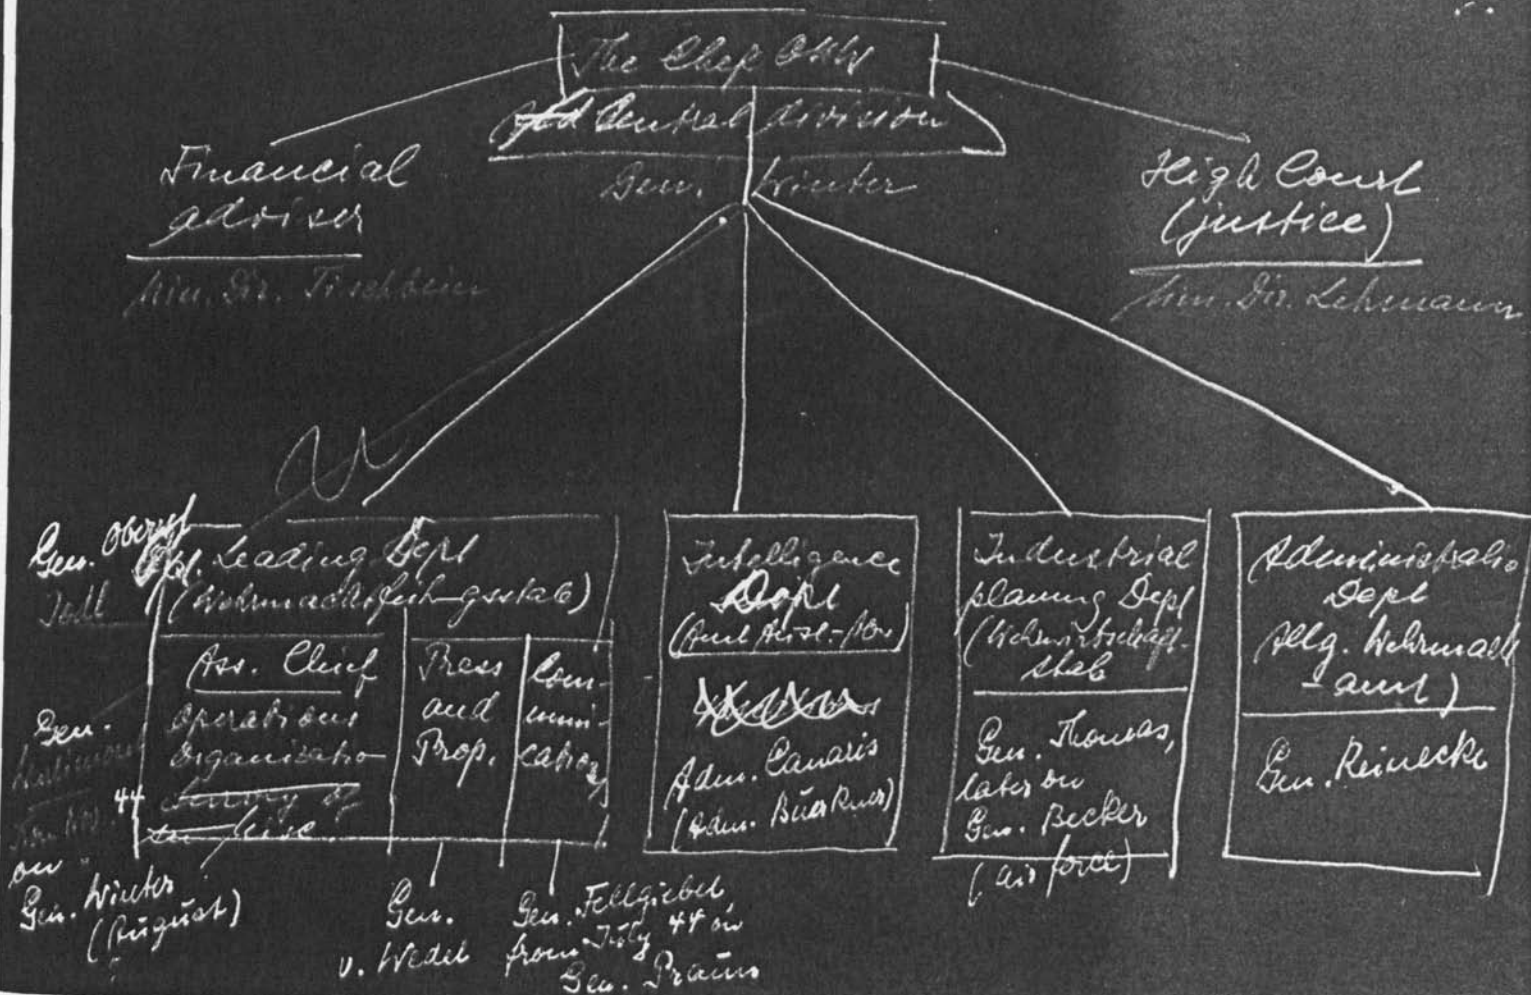 The Chef OKW
and Central division
Gen. Winter
Financial
adviser
Min. Dir. Tischbein
High Court
(justice)
Min. Dir. Lehmann
Gen. Oberst
Jodl
Leading Dept
(Wehrmachtsführungsstab)
Ass. Chief
Operations
Organisation
Press
and
Prop.
Com-
muni-
cations
Gen.
44
on
Gen. Winter
(August)
?
Gen.
v. Wedel
Gen. Fellgiebel,
from July 44 on
Gen. Praun
Intelligence
Dept
(Amt Ausl-Abw)
Adm. Canaris
(Adm. Bürkner)
Industrial
planung Dept
(Wehrwirtschaft-
stab
Gen. Thomas,
later on
Gen. Becker
(air force)
Administratio
Dept
Allg. Wehrmacht
-amt)
Gen. Reinecke